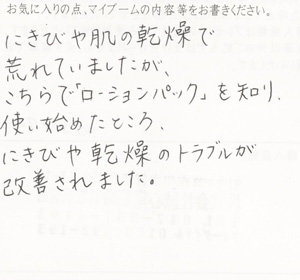 お気に入りの点、マイブームの内容等をお書きください。
にきびや肌の乾燥で
荒れていましたが、
こちらで「ローションパック」を知り、
使い始めたところ、
にきびや乾燥のトラブルが
改善されました。